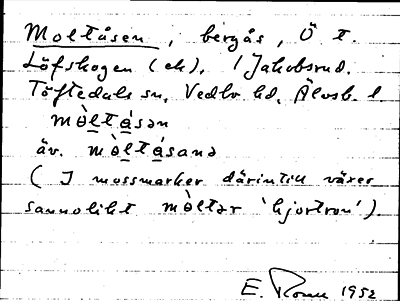 Moltåsen, bergås, Ö t.
Löfskogen (ek), i Jakobsrud.
Töftedals sn, Vedbo hd, Älvsb. l.
mòltásən
äv. mòltásanə
(I mossmarker därintill växer
sannolikt mòltər 'hjortron').
E. 1952